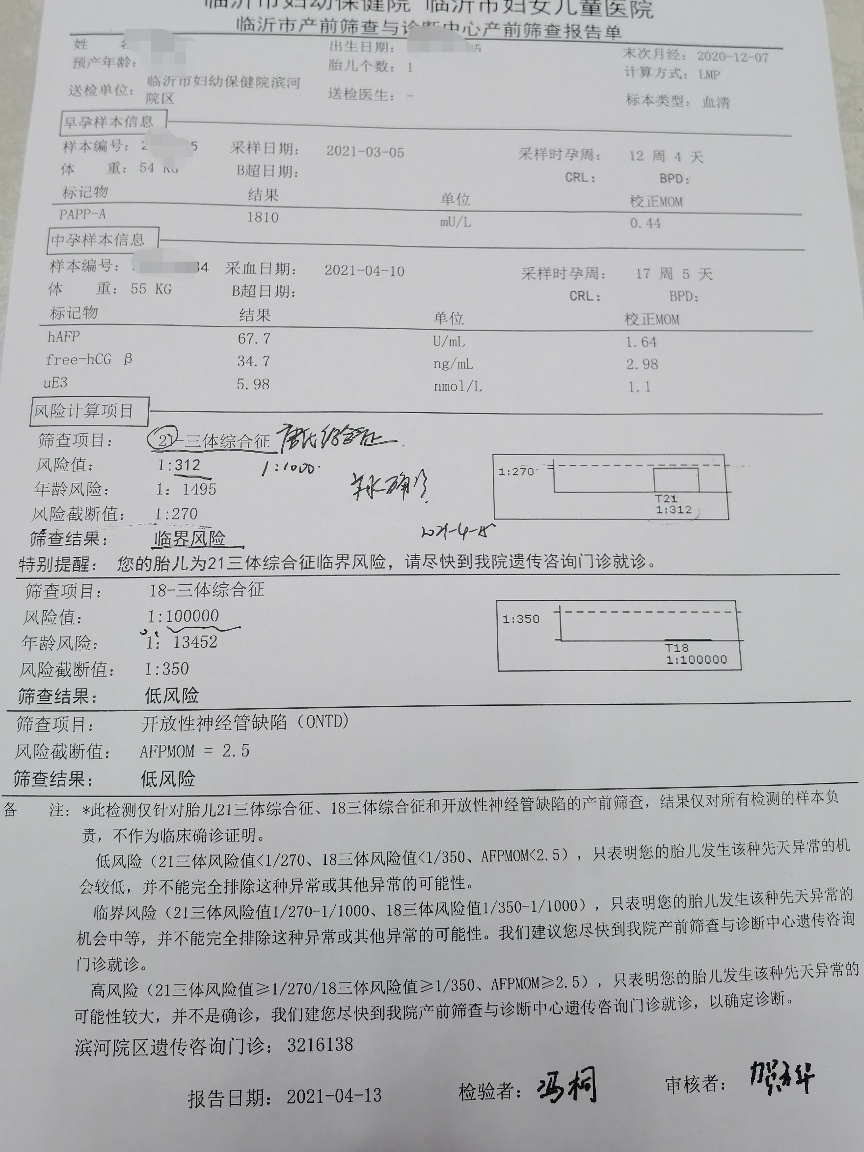 临沂市妇幼保健院 临沂市妇女儿童医院
临沂市产前筛查与诊断中心产前筛查报告单
姓 出生日期: 5 末次月经: 2020-12-07
预产年龄: 胎儿个数: 1 计算方式: LMP
送检单位: 临沂市妇幼保健院滨河院区 送检医生: - 标本类型: 血清
早孕样本信息
样本编号: 2 5 采样日期: 2021-03-05 采样时孕周: 12 周 4 天
体 重: 54 KG B超日期: CRL: BPD:
标记物 结果 单位 校正MOM
PAPP-A 1810 mU/L 0.44
中孕样本信息
样本编号: 34 采血日期: 2021-04-10 采样时孕周: 17 周 5 天
体 重: 55 KG B超日期: CRL: BPD:
标记物 结果 单位 校正MOM
hAFP 67.7 U/mL 1.64
free-hCG β 34.7 ng/mL 2.98
uE3 5.98 nmol/L 1.1
风险计算项目
筛查项目: 21-三体综合征 唐氏综合征
风险值: 1:312 1:1000
年龄风险: 1: 1495 羊水确诊
风险截断值: 1:270
1:270
T21
1:312
筛查结果: 临界风险
特别提醒: 您的胎儿为21三体综合征临界风险,请尽快到我院遗传咨询门诊就诊。
筛查项目: 18-三体综合征
风险值: 1:100000
年龄风险: 1: 13452
风险截断值: 1:350
1:350
T18
1:100000
筛查结果: 低风险
筛查项目: 开放性神经管缺陷(ONTD)
风险截断值: AFPMOM = 2.5
筛查结果: 低风险
备 注: *此检测仅针对胎儿21三体综合征、18三体综合征和开放性神经管缺陷的产前筛查,结果仅对所有检测的样本负
责,不作为临床确诊证明。
低风险(21三体风险值<1/270、18三体风险值<1/350、AFPMOM<2.5),只表明您的胎儿发生该种先天异常的机
会较低,并不能完全排除这种异常或其他异常的可能性。
临界风险(21三体风险值1/270-1/1000、18三体风险值1/350-1/1000),只表明您的胎儿发生该种先天异常的
机会中等,并不能完全排除这种异常或其他异常的可能性。我们建议您尽快到我院产前筛查与诊断中心遗传咨询
门诊就诊。
高风险(21三体风险值≥1/270/18三体风险值≥1/350、AFPMOM≥2.5),只表明您的胎儿发生该种先天异常的
可能性较大,并不是确诊,我们建您尽快到我院产前筛查与诊断中心遗传咨询门诊就诊,以确定诊断。
滨河院区遗传咨询门诊: 3216138
报告日期: 2021-04-13 检验者: 冯桐 审核者: